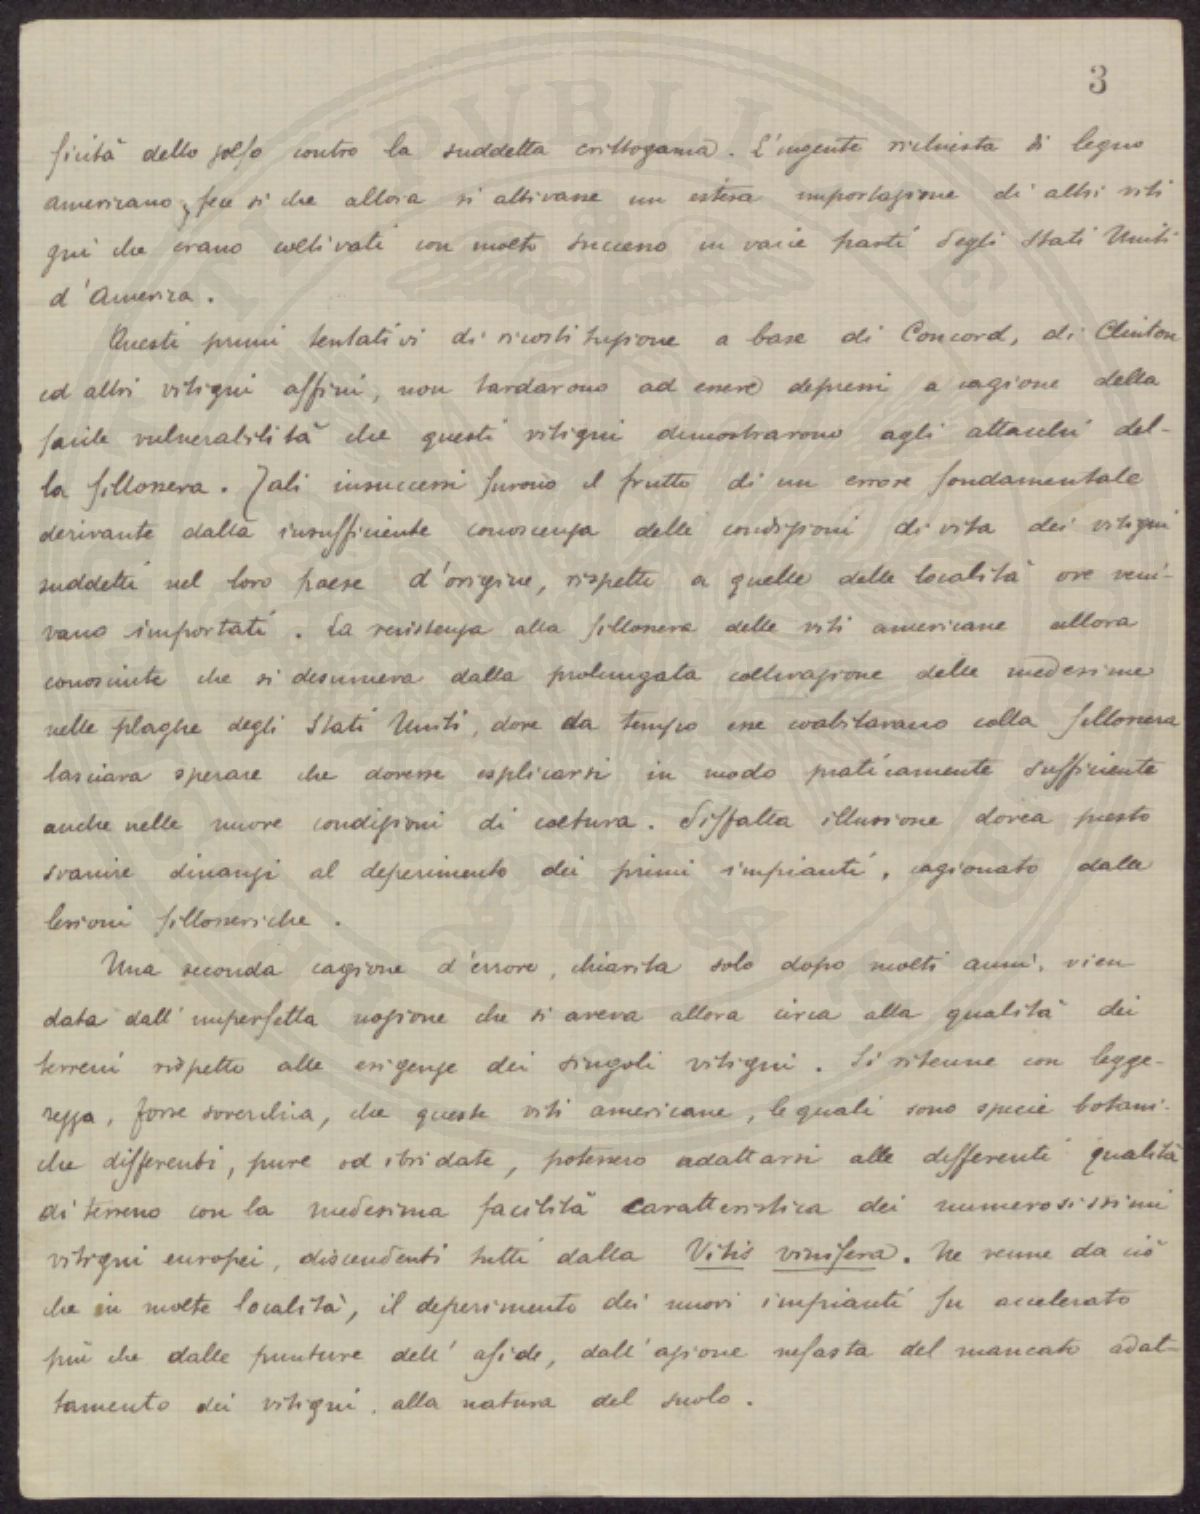 3
ficità dello zolfo contro la suddetta crittogama. L'ingente richiesta di legno
americano, fece si che allora si attivasse un estesa importazione di altri viti
gni che erano coltivati con molto successo in varie parti degli Stati Uniti
d'America.
Questi primi tentativi di ricostituzione a base di Concord, di Clinton
ed altri vitigni affini, non tardarono ad essere depressi a cagione della
facile vulnerabilità che questi vitigni dimostrarono agli attacchi del-
la fillossera. Tali insuccessi furono il frutto di un errore fondamentale
derivante dalla insufficiente conoscenza delle condizioni di vita dei vitigni
suddetti nel loro paese d'origine, rispetto a quelle delle località ove veni-
vano importati. La resistenza alla fillossera delle viti americane allora
conosciute che si desumeva dalla prolungata coltivazione delle medesime
nelle plaghe degli Stati Uniti, dove da tempo esse coabitavano colla fillossera
lasciava sperare che dovesse esplicarsi in modo praticamente sufficiente
anche nelle nuove condizioni di coltura. Siffatta illusione dovea presto
svanire dinanzi al deperimento dei primi impianti, cagionato dalle
lesioni fillosseriche.
Una seconda cagione d'errore, chiarita solo dopo molti anni, vien
data dall'imperfetta nozione che si aveva allora circa alla qualità dei
terreni rispetto alle esigenze dei singoli vitigni. Si ritenne con legge-
rezza, forse soverchia, che queste viti americane, le quali sono specie botani-
che differenti, pure od ibridate, potessero adattarsi alle differenti qualità
di terreno con la medesima facilità caratteristica dei numerosissimi
vitigni europei, discendenti tutti dalla Vitis vinifera. Ne venne da ciò
che in molte località, il deperimento dei nuovi impianti fu accelerato
più che dalle punture dell'afide, dall'azione nefasta del mancato adat-
tamento dei vitigni, alla natura del suolo.